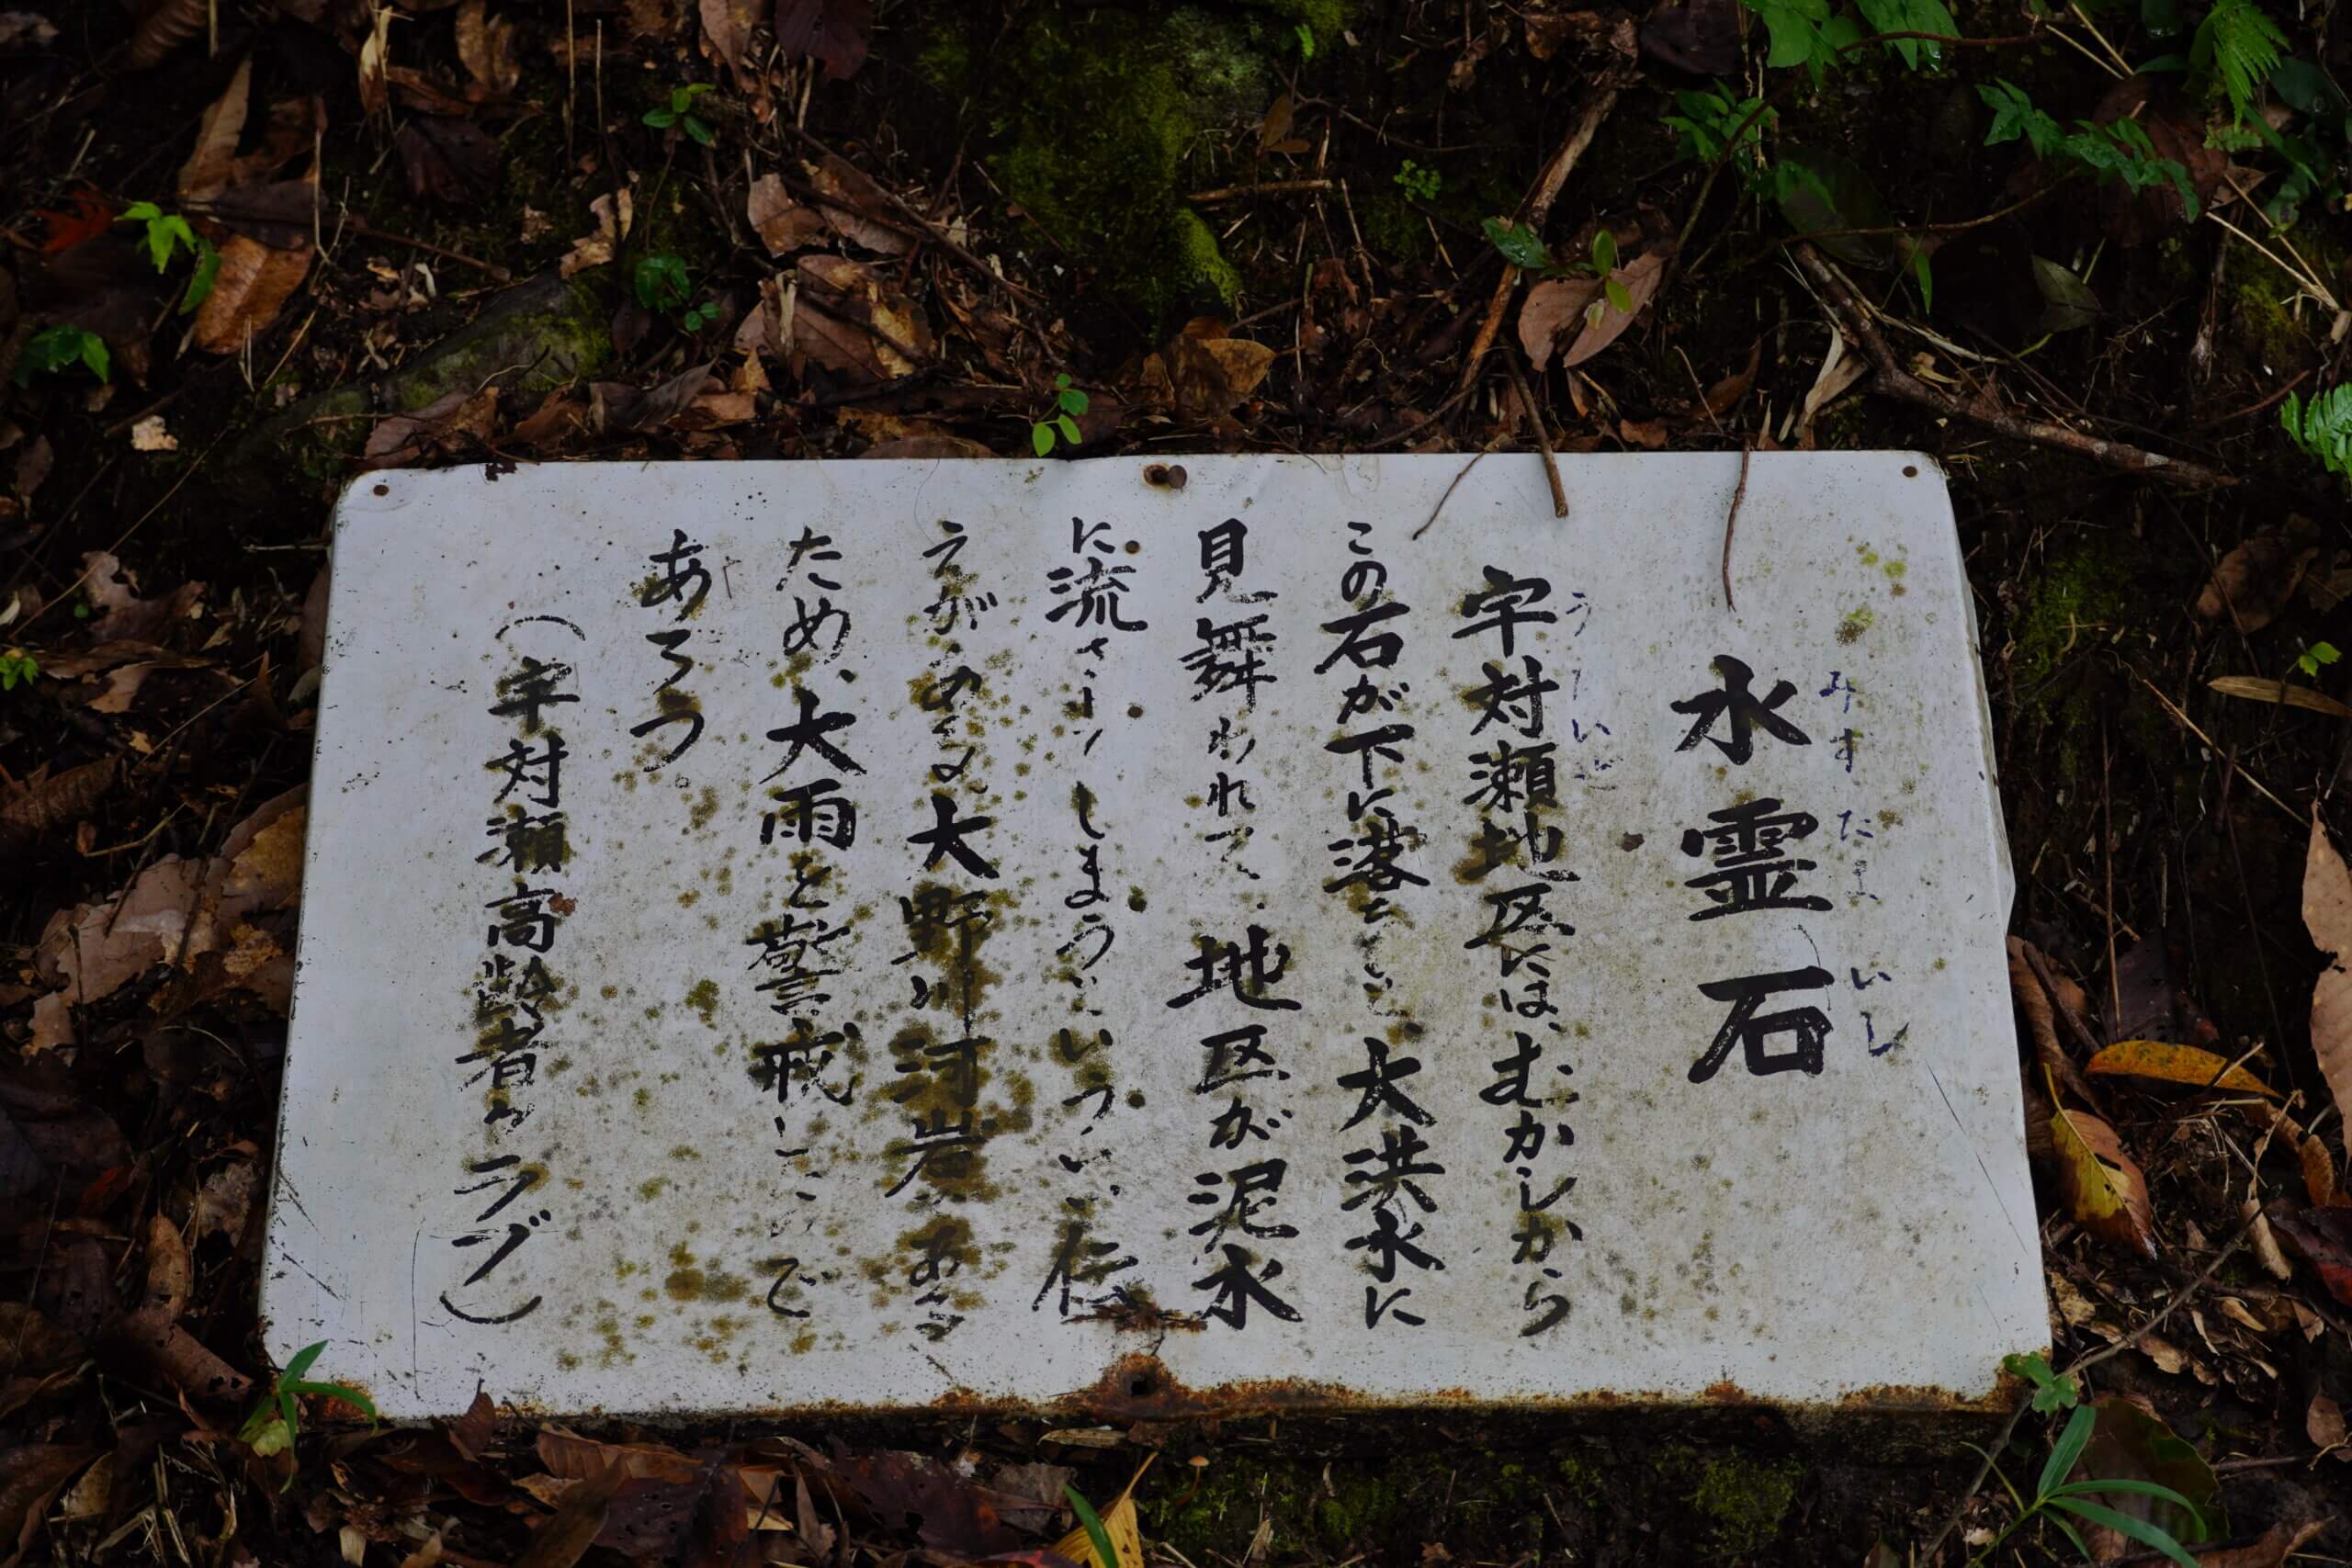 水霊石
みずたまいし
宇対瀬地区には、むかしから
うたいせ
この石が下に落ちると、大洪水に
見舞われて、地区が泥水
に流されてしまうという、いい伝
えがある。大野川河岸にある
ため、大雨を警戒したので
あろう。
（宇対瀬高齢者クラブ）